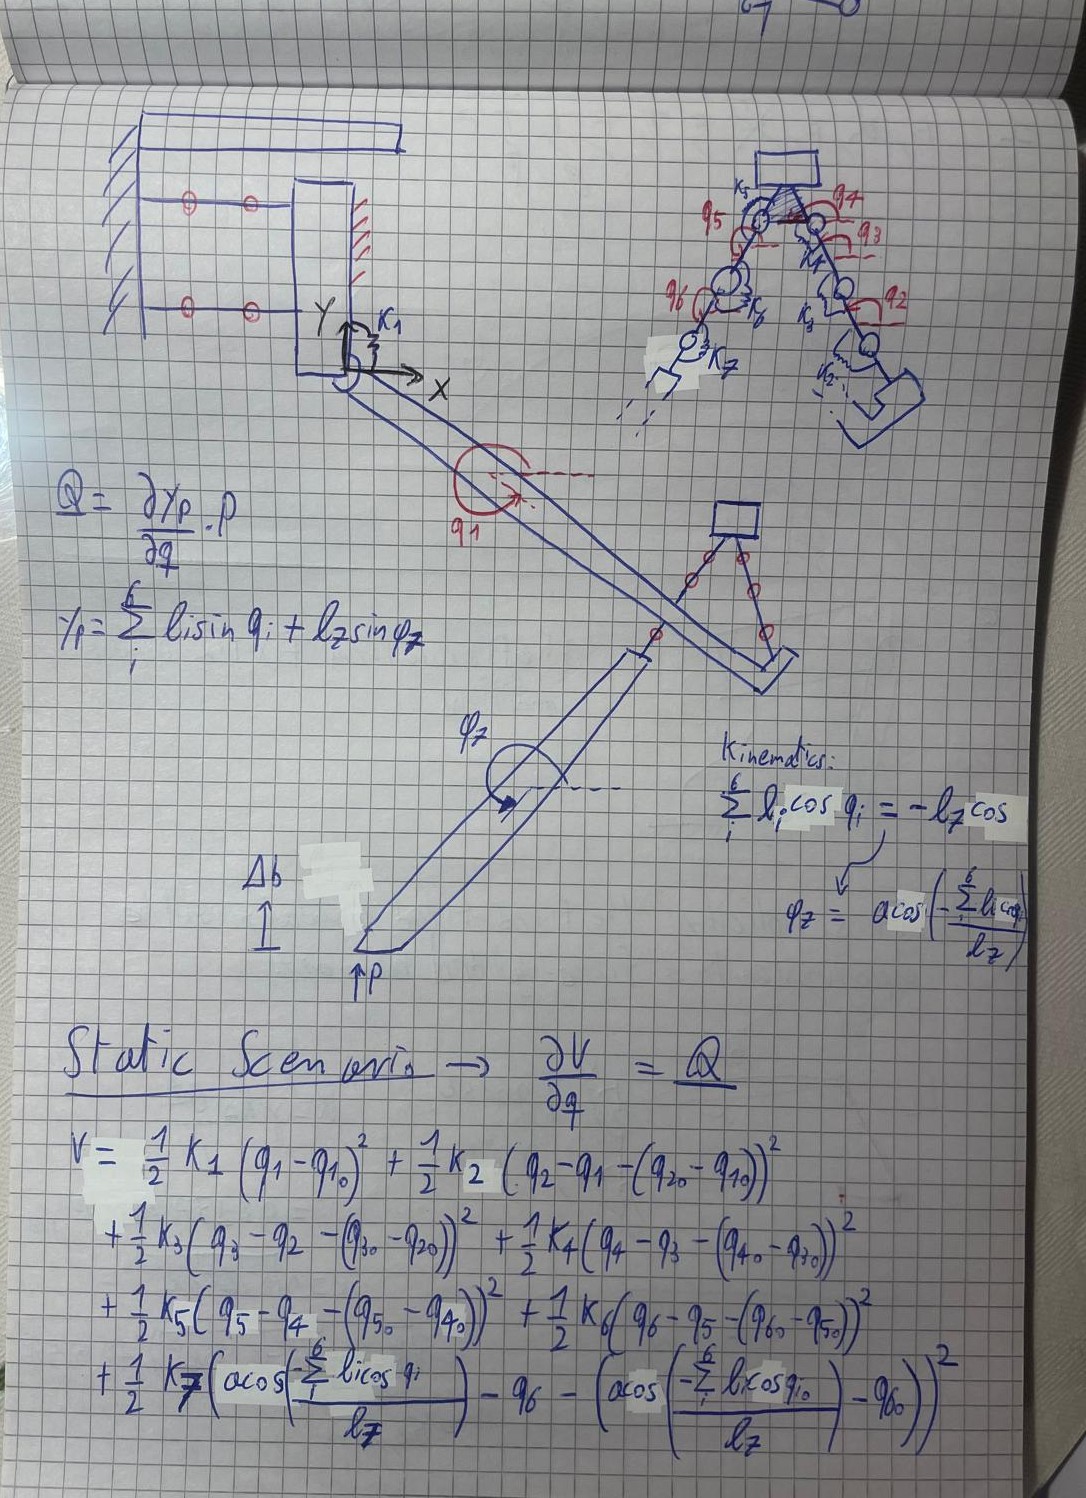 K5
q5
q4
q3
K4
q6
K6
K3
q2
K7
K2
Y
K1
X
q1
Q = ∂Yp/∂q · P
Yp = Σ_i^6 li sin qi + l7 sin φ7
φ7
Kinematics:
Σ_i^6 li cos qi = -l7 cos
φ7 = acos(-Σ_i^6 li cos qi / l7)
Δb
↑P
Static Scenario → ∂V/∂q = Q
V = 1/2 K1 (q1 - q10)^2 + 1/2 K2 (q2 - q1 - (q20 - q10))^2
+ 1/2 K3 (q3 - q2 - (q30 - q20))^2 + 1/2 K4 (q4 - q3 - (q40 - q30))^2
+ 1/2 K5 (q5 - q4 - (q50 - q40))^2 + 1/2 K6 (q6 - q5 - (q60 - q50))^2
+ 1/2 K7 (acos(-Σ_i^6 li cos qi / l7) - q6 - (acos(-Σ_i^6 li cos qi0 / l7) - q60))^2